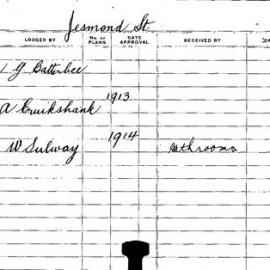 Jesmond St
LODGED BY No. OF PLANS DATE APPROVAL RECEIVED BY
L G Batterbee
1913
A Cruikshank
1914
W Sulway Bathrooms